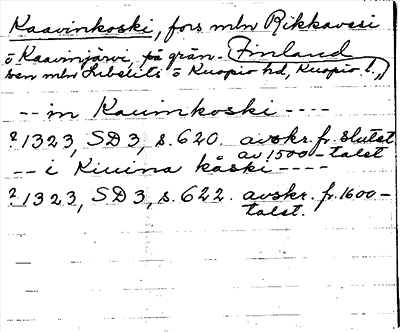 Kaavinkoski, fors mln Rikkavesi
o Kaavinjärvi, på grän- Finland
sen mln Libelits o Kuopio hd, Kuopio l.
-- in Kauinkoski ----
? 1323, SD 3, s. 620. avskr. fr. slutet
av 1500-talet
-- i Kiuina kåski ----
? 1323, SD 3, s. 622. avskr. fr. 1600-
talet.